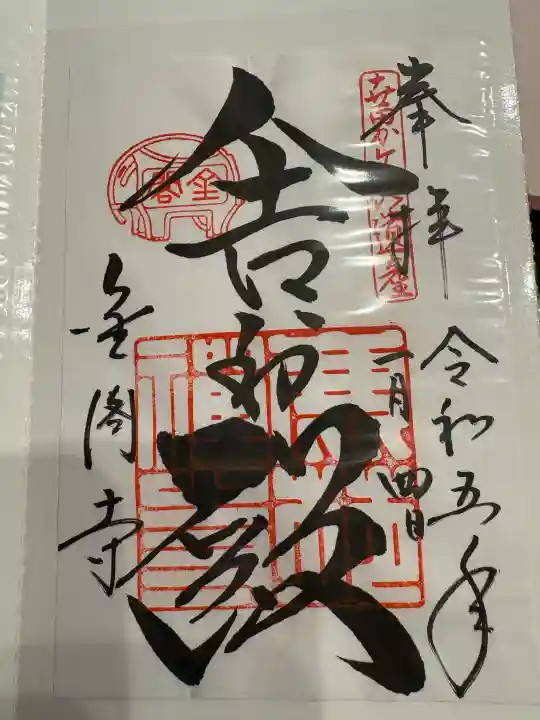 奉拝
令和五年
一月四日
舎利殿
金閣
金閣寺